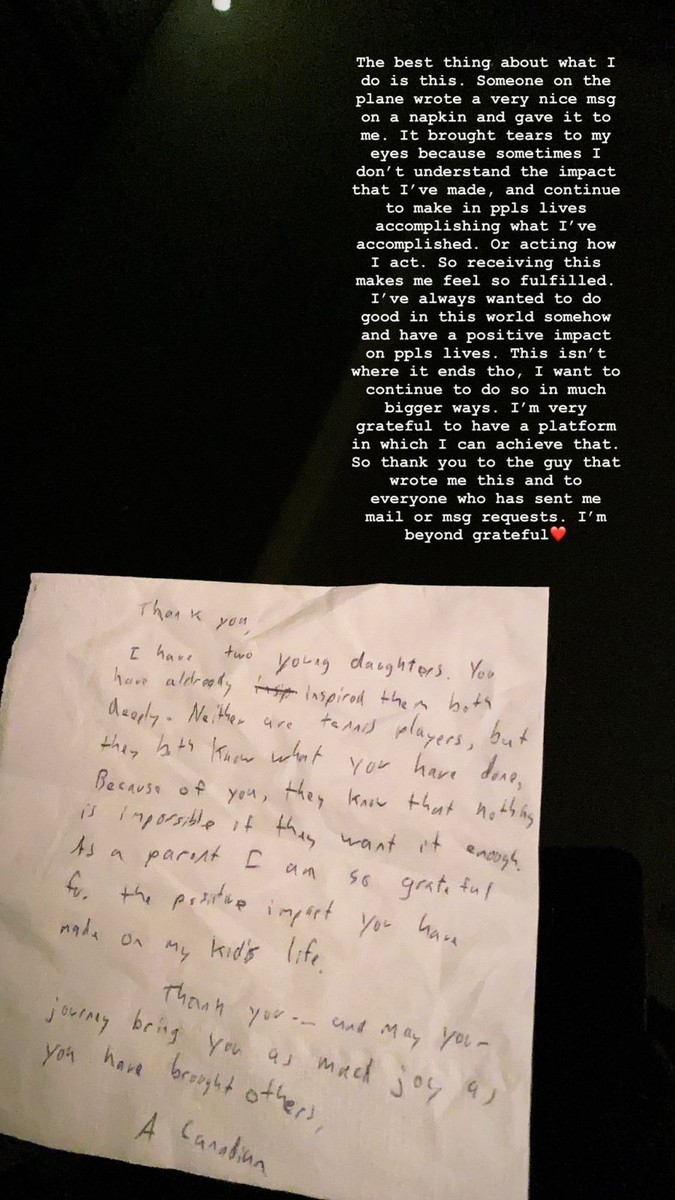 The best thing about what I
do is this. Someone on the
plane wrote a very nice msg
on a napkin and gave it to
me. It brought tears to my
eyes because sometimes I
don't understand the impact
that I've made, and continue
to make in ppls lives
accomplishing what I've
accomplished. Or acting how
I act. So receiving this
makes me feel so fulfilled.
I've always wanted to do
good in this world somehow
and have a positive impact
on ppls lives. This isn't
where it ends tho, I want to
continue to do so in much
bigger ways. I'm very
grateful to have a platform
in which I can achieve that.
So thank you to the guy that
wrote me this and to
everyone who has sent me
mail or msg requests. I'm
beyond grateful❤️
Thank you,
I have two young daughters. You
have aldready insp inspired them both
deeply. Neither are tennis players, but
they both know what you have done.
Because of you, they know that nothing
is impossible if they want it enough.
As a parent I am so grateful
for the positive impact you have
made on my kid's life.
Thank you -- and may your
journey bring you as much joy as
you have brought others,
A Canadian